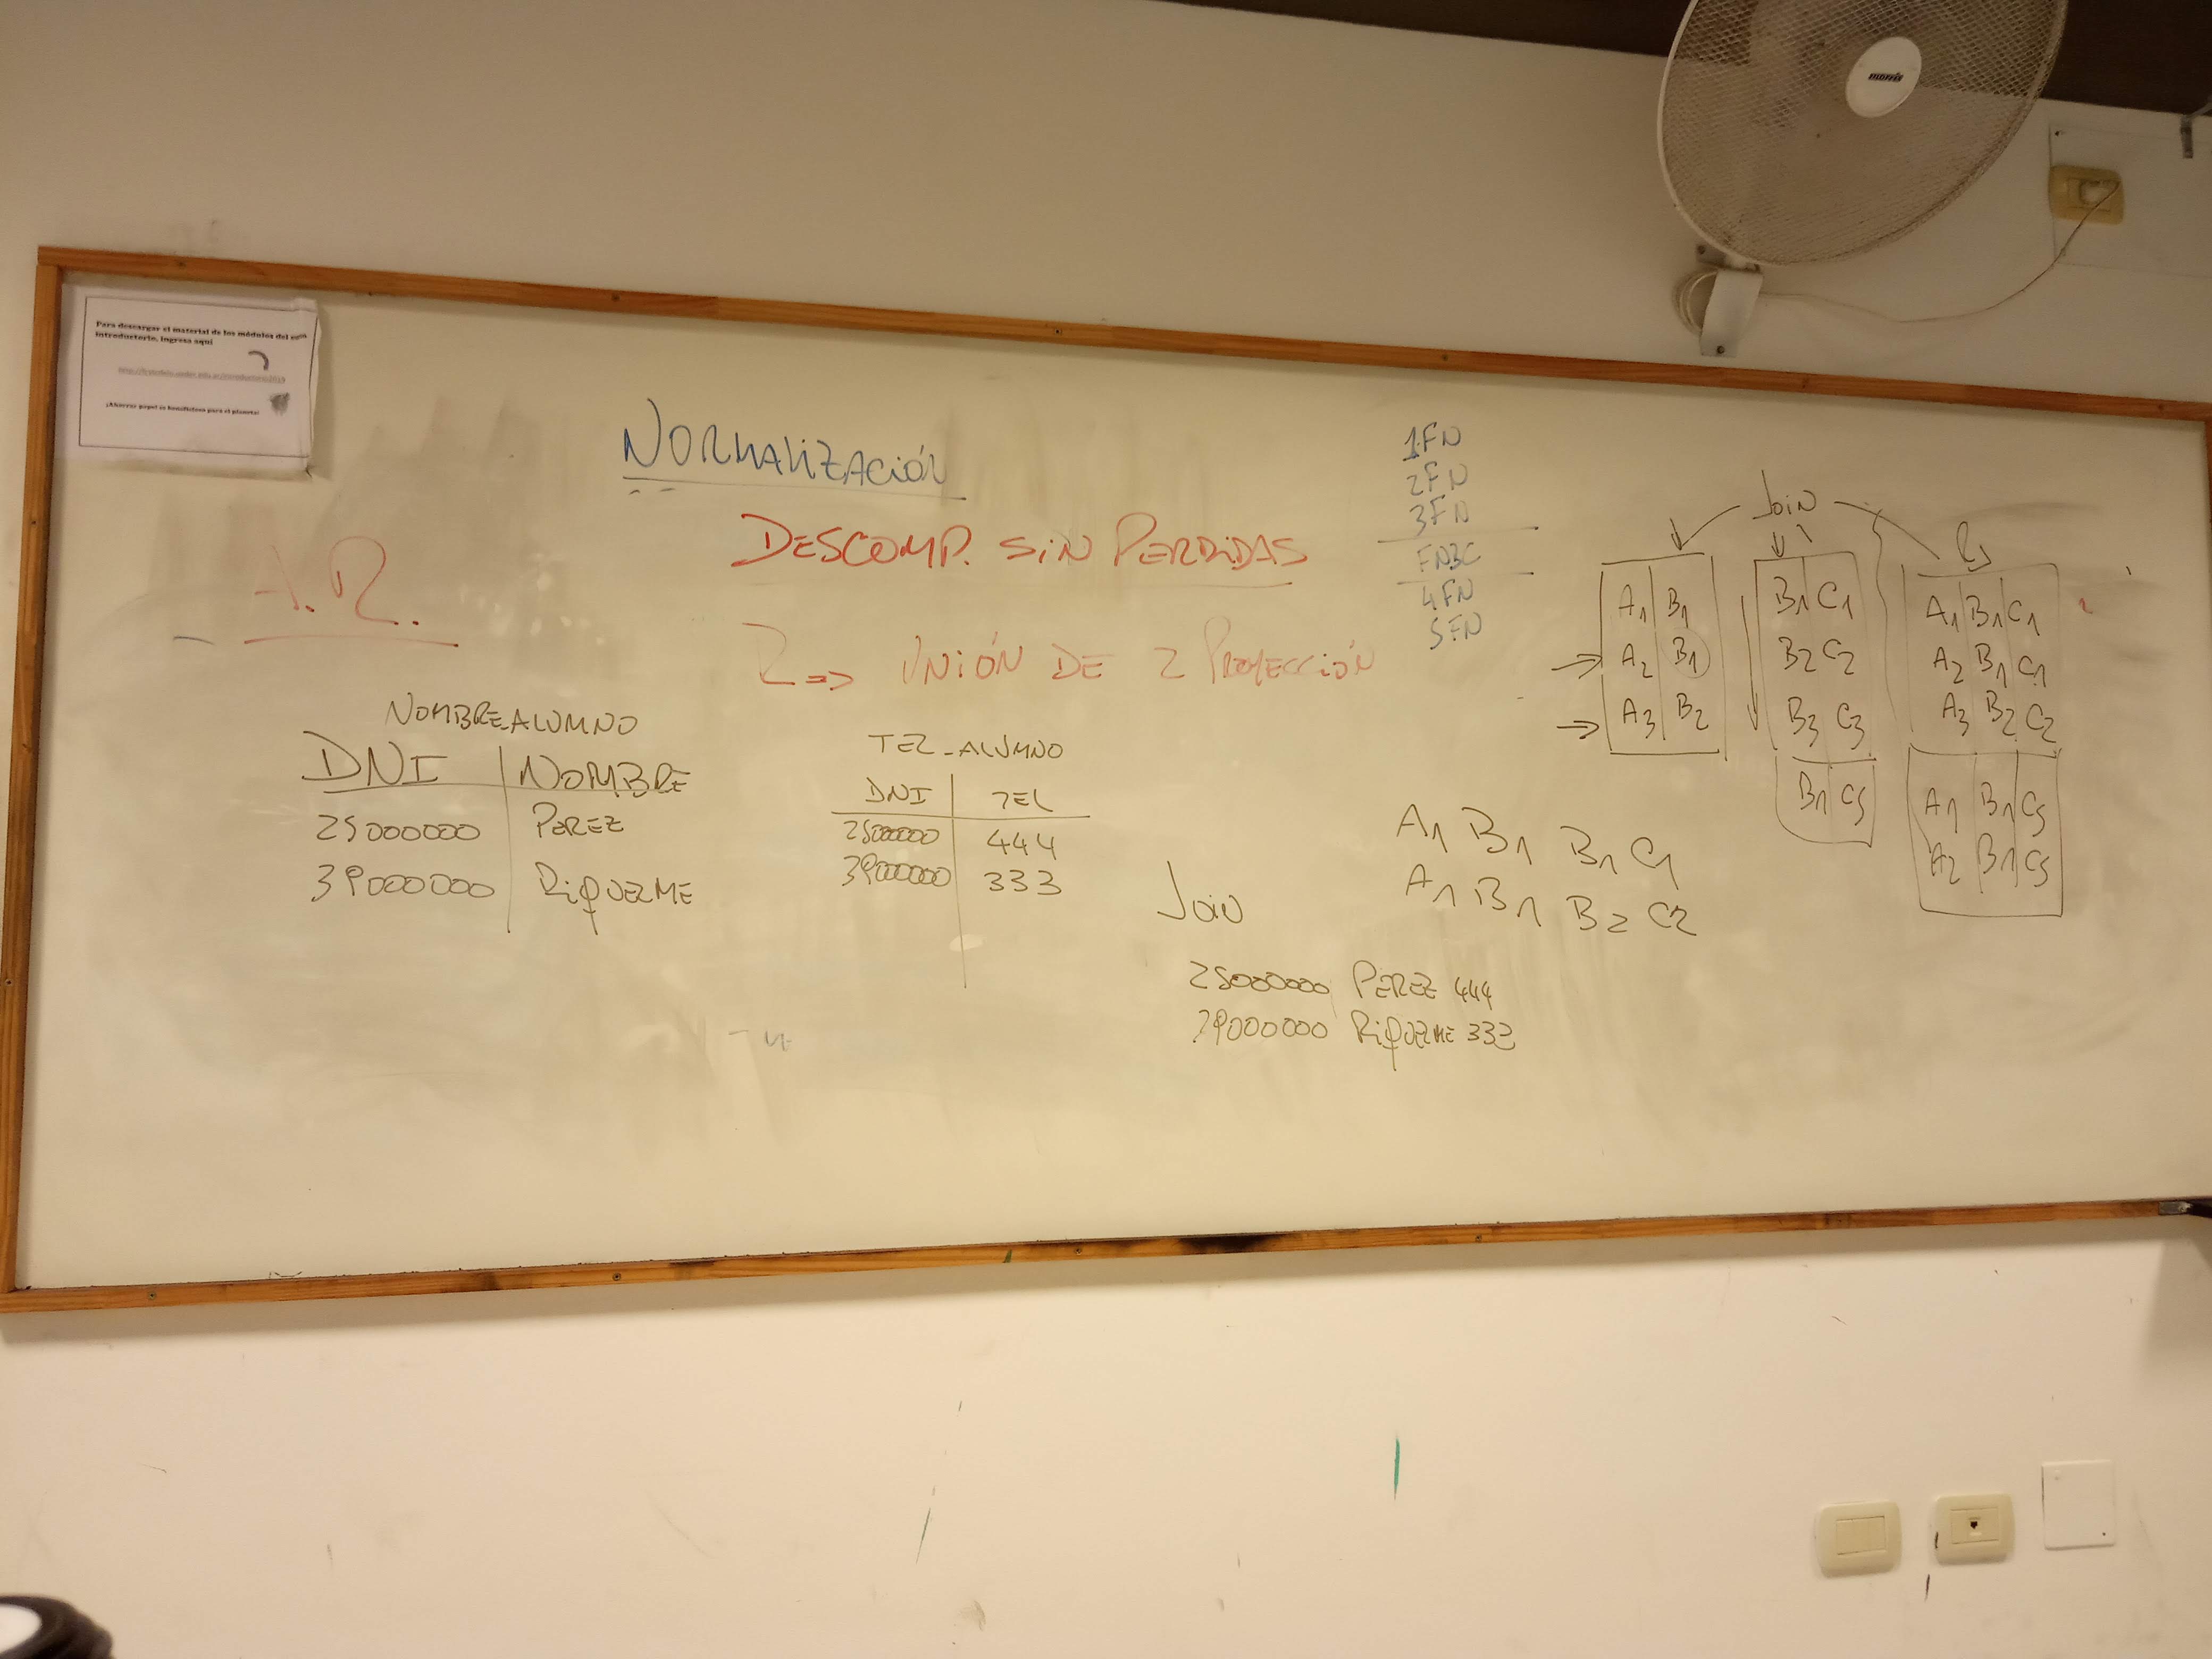 Para descargar el material de los módulos del
introductorio, ingresa aquí
¡Ahorrar papel es beneficioso para el planeta!
NORMALIZACIÓN
DESCOMP. SIN PERDIDAS
A.R.
R => UNIÓN DE 2 PROYECCIÓN
1FN
2FN
3FN
FNBC
4FN
5FN
NOMBRE_ALUMNO
DNI NOMBRE
25000000 PEREZ
39000000 RIQUELME
TEL_ALUMNO
DNI TEL
25000000 444
39000000 333
JOIN
25000000 PEREZ 444
39000000 RIQUELME 333
A1 B1 B1 C1
A1 B1 B2 C2
JOIN
A1 B1
A2 B1
A3 B2
B1 C1
B2 C2
B3 C3
B1 C5
A1 B1 C1
A2 B1 C1
A3 B2 C2
A1 B1 C5
A2 B1 C5
morris